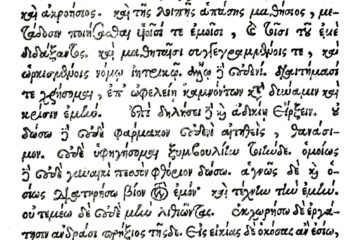 καὶ ἀκροήσιος. καὶ τῆς λοιπῆς ἁπάσης μαθήσιος, με-
τάδοσιν ποιήσασθαι υἱοῖσί τε ἐμοῖσι, καὶ τοῖσι τοῦ ἐμὲ
διδάξαντος. καὶ μαθηταῖσι συγγεγραμμένοις τε, καὶ
ὡρκισμένοις νόμῳ ἰητρικῷ. ἄλλῳ δὲ οὐδενί. διαιτήμασί
τε χρήσομαι, ἐπ' ὠφελείῃ καμνόντων κατὰ δύναμιν καὶ
κρίσιν ἐμὴν. ἐπὶ δηλήσει δὲ καὶ ἀδικίῃ εἴρξειν. οὐ
δώσω δὲ οὐδὲ φάρμακον οὐδενὶ αἰτηθεὶς, θανάσι-
μον. οὐδὲ ὑφηγήσομαι ξυμβουλίην τοιήνδε. ὁμοίως
δὲ οὐδὲ γυναικὶ πεσσὸν φθόριον δώσω. ἁγνῶς δὲ καὶ ὁ-
σίως διατηρήσω βίον τὸν ἐμὸν καὶ τέχνην τὴν ἐμήν.
οὐ τεμέω δὲ οὐδὲ μὴν λιθιῶντας. ἐκχωρήσω δὲ ἐργά-
τῃσιν ἀνδράσι πρήξιος τῆσδε. εἰς οἰκίας δὲ ὁκόσας ἂν ἐσίω,